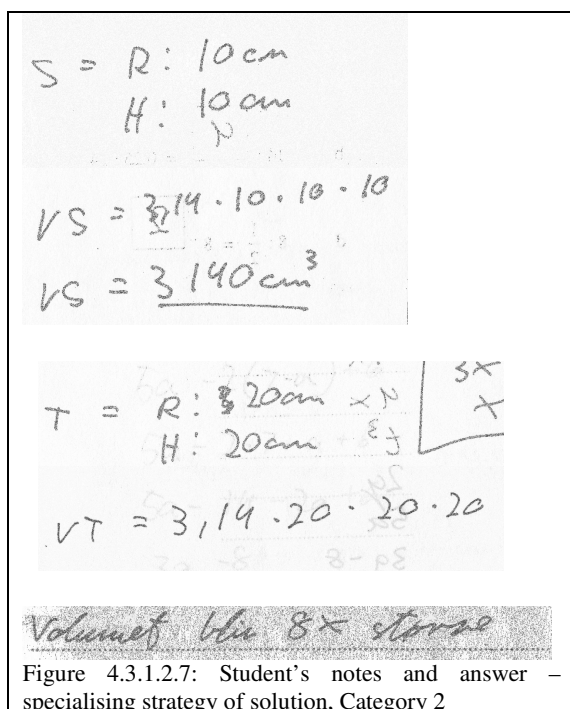 S = R: 10 cm
H: 10 cm
VS = 3,14 · 10 · 10 · 10
VS = 3 140 cm³
3x
T = R: 20 cm
x
H: 20 cm
VT = 3,14 · 20 · 20 · 20
Volumet blir 8x større
Figure 4.3.1.2.7: Student's notes and answer –
specialising strategy of solution, Category 2